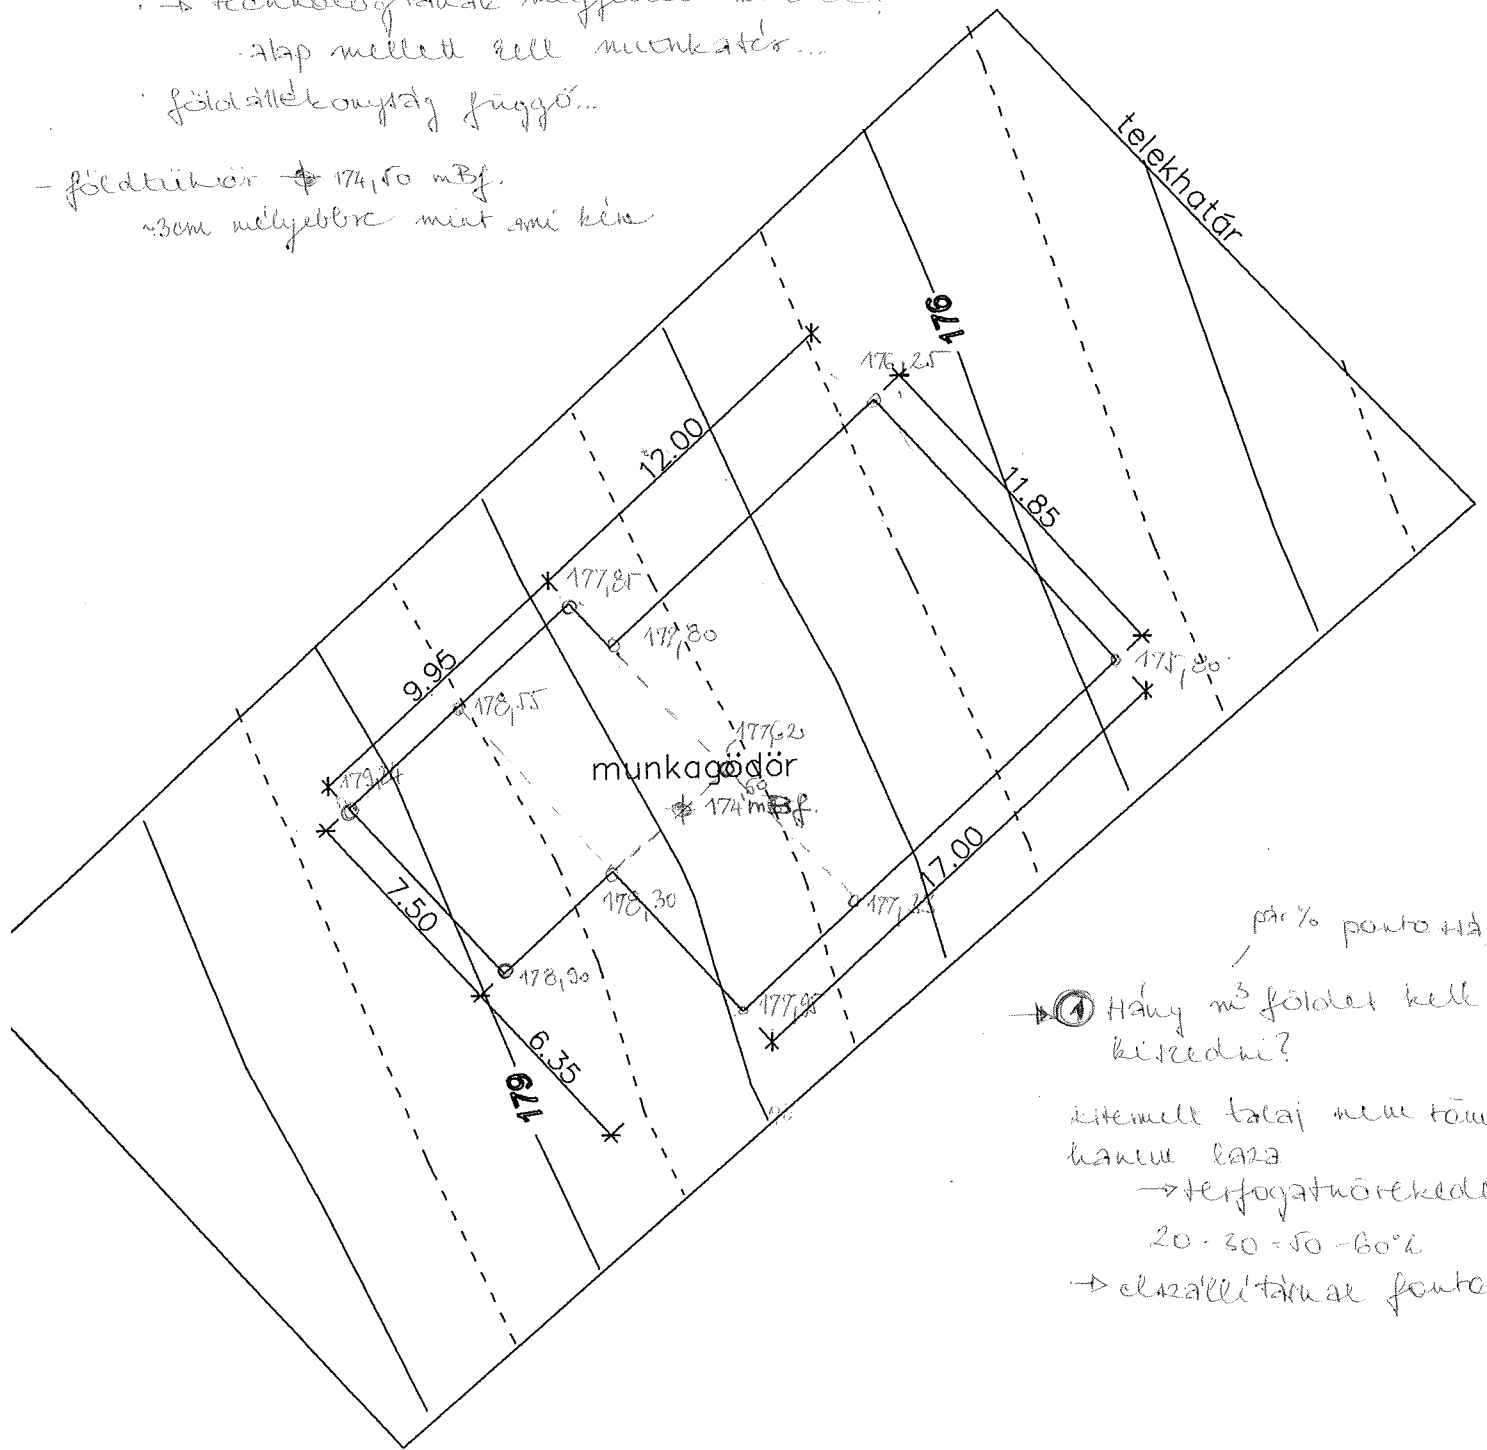 → technológiának
alap mellett kell munkatér...
földállékonyság függő...
- földtükör 174,50 mBf.
~3cm mélyebbre mint ami kéne
telekhatár
176
176,25
12.00
11.85
177,85
177,80
9.95
178,55
175,80
179,24
177,62
munkagödör
174 mBf.
7.50
178,30
17.00
178,90
177,95
6.35
179
pár % ponto
→ ① Hány m³ földet kell
kiszedni?
kitermelt talaj nem
hanem laza
→ térfogatnöveked
20 - 30 - 50 - 60%
→ elszállításnál fonto